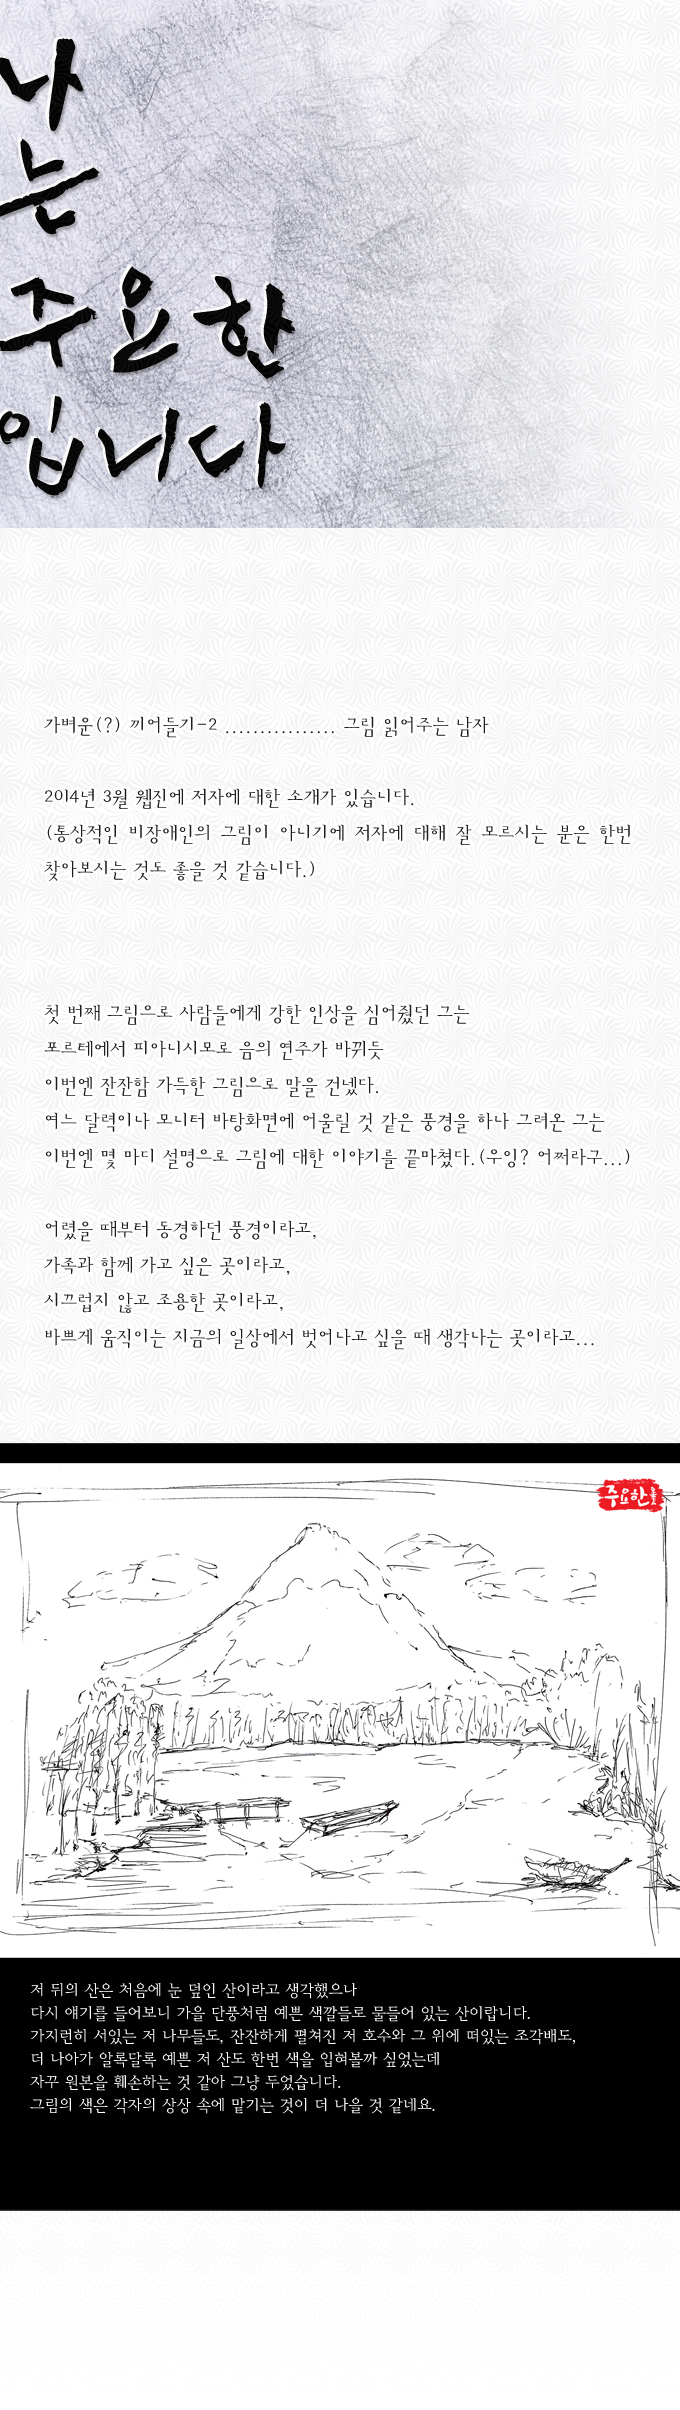 나
는
주요한
입니다
가벼운(?) 끼어들기-2 ................ 그림 읽어주는 남자
2014년 3월 웹진에 저자에 대한 소개가 있습니다.
(통상적인 비장애인의 그림이 아니기에 저자에 대해 잘 모르시는 분은 한번
찾아보시는 것도 좋을 것 같습니다.)
첫 번째 그림으로 사람들에게 강한 인상을 심어줬던 그는
포르테에서 피아니시모로 음의 연주가 바뀌듯
이번엔 잔잔함 가득한 그림으로 말을 건넸다.
여느 달력이나 모니터 바탕화면에 어울릴 것 같은 풍경을 하나 그려온 그는
이번엔 몇 마디 설명으로 그림에 대한 이야기를 끝마쳤다.(우잉? 어쩌라구...)
어렸을 때부터 동경하던 풍경이라고,
가족과 함께 가고 싶은 곳이라고,
시끄럽지 않고 조용한 곳이라고,
바쁘게 움직이는 지금의 일상에서 벗어나고 싶을 때 생각나는 곳이라고...
주요한
저 뒤의 산은 처음에 눈 덮인 산이라고 생각했으나
다시 얘기를 들어보니 가을 단풍처럼 예쁜 색깔들로 물들어 있는 산이랍니다.
가지런히 서있는 저 나무들도, 잔잔하게 펼쳐진 저 호수와 그 위에 떠있는 조각배도,
더 나아가 알록달록 예쁜 저 산도 한번 색을 입혀볼까 싶었는데
자꾸 원본을 훼손하는 것 같아 그냥 두었습니다.
그림의 색은 각자의 상상 속에 맡기는 것이 더 나을 것 같네요.